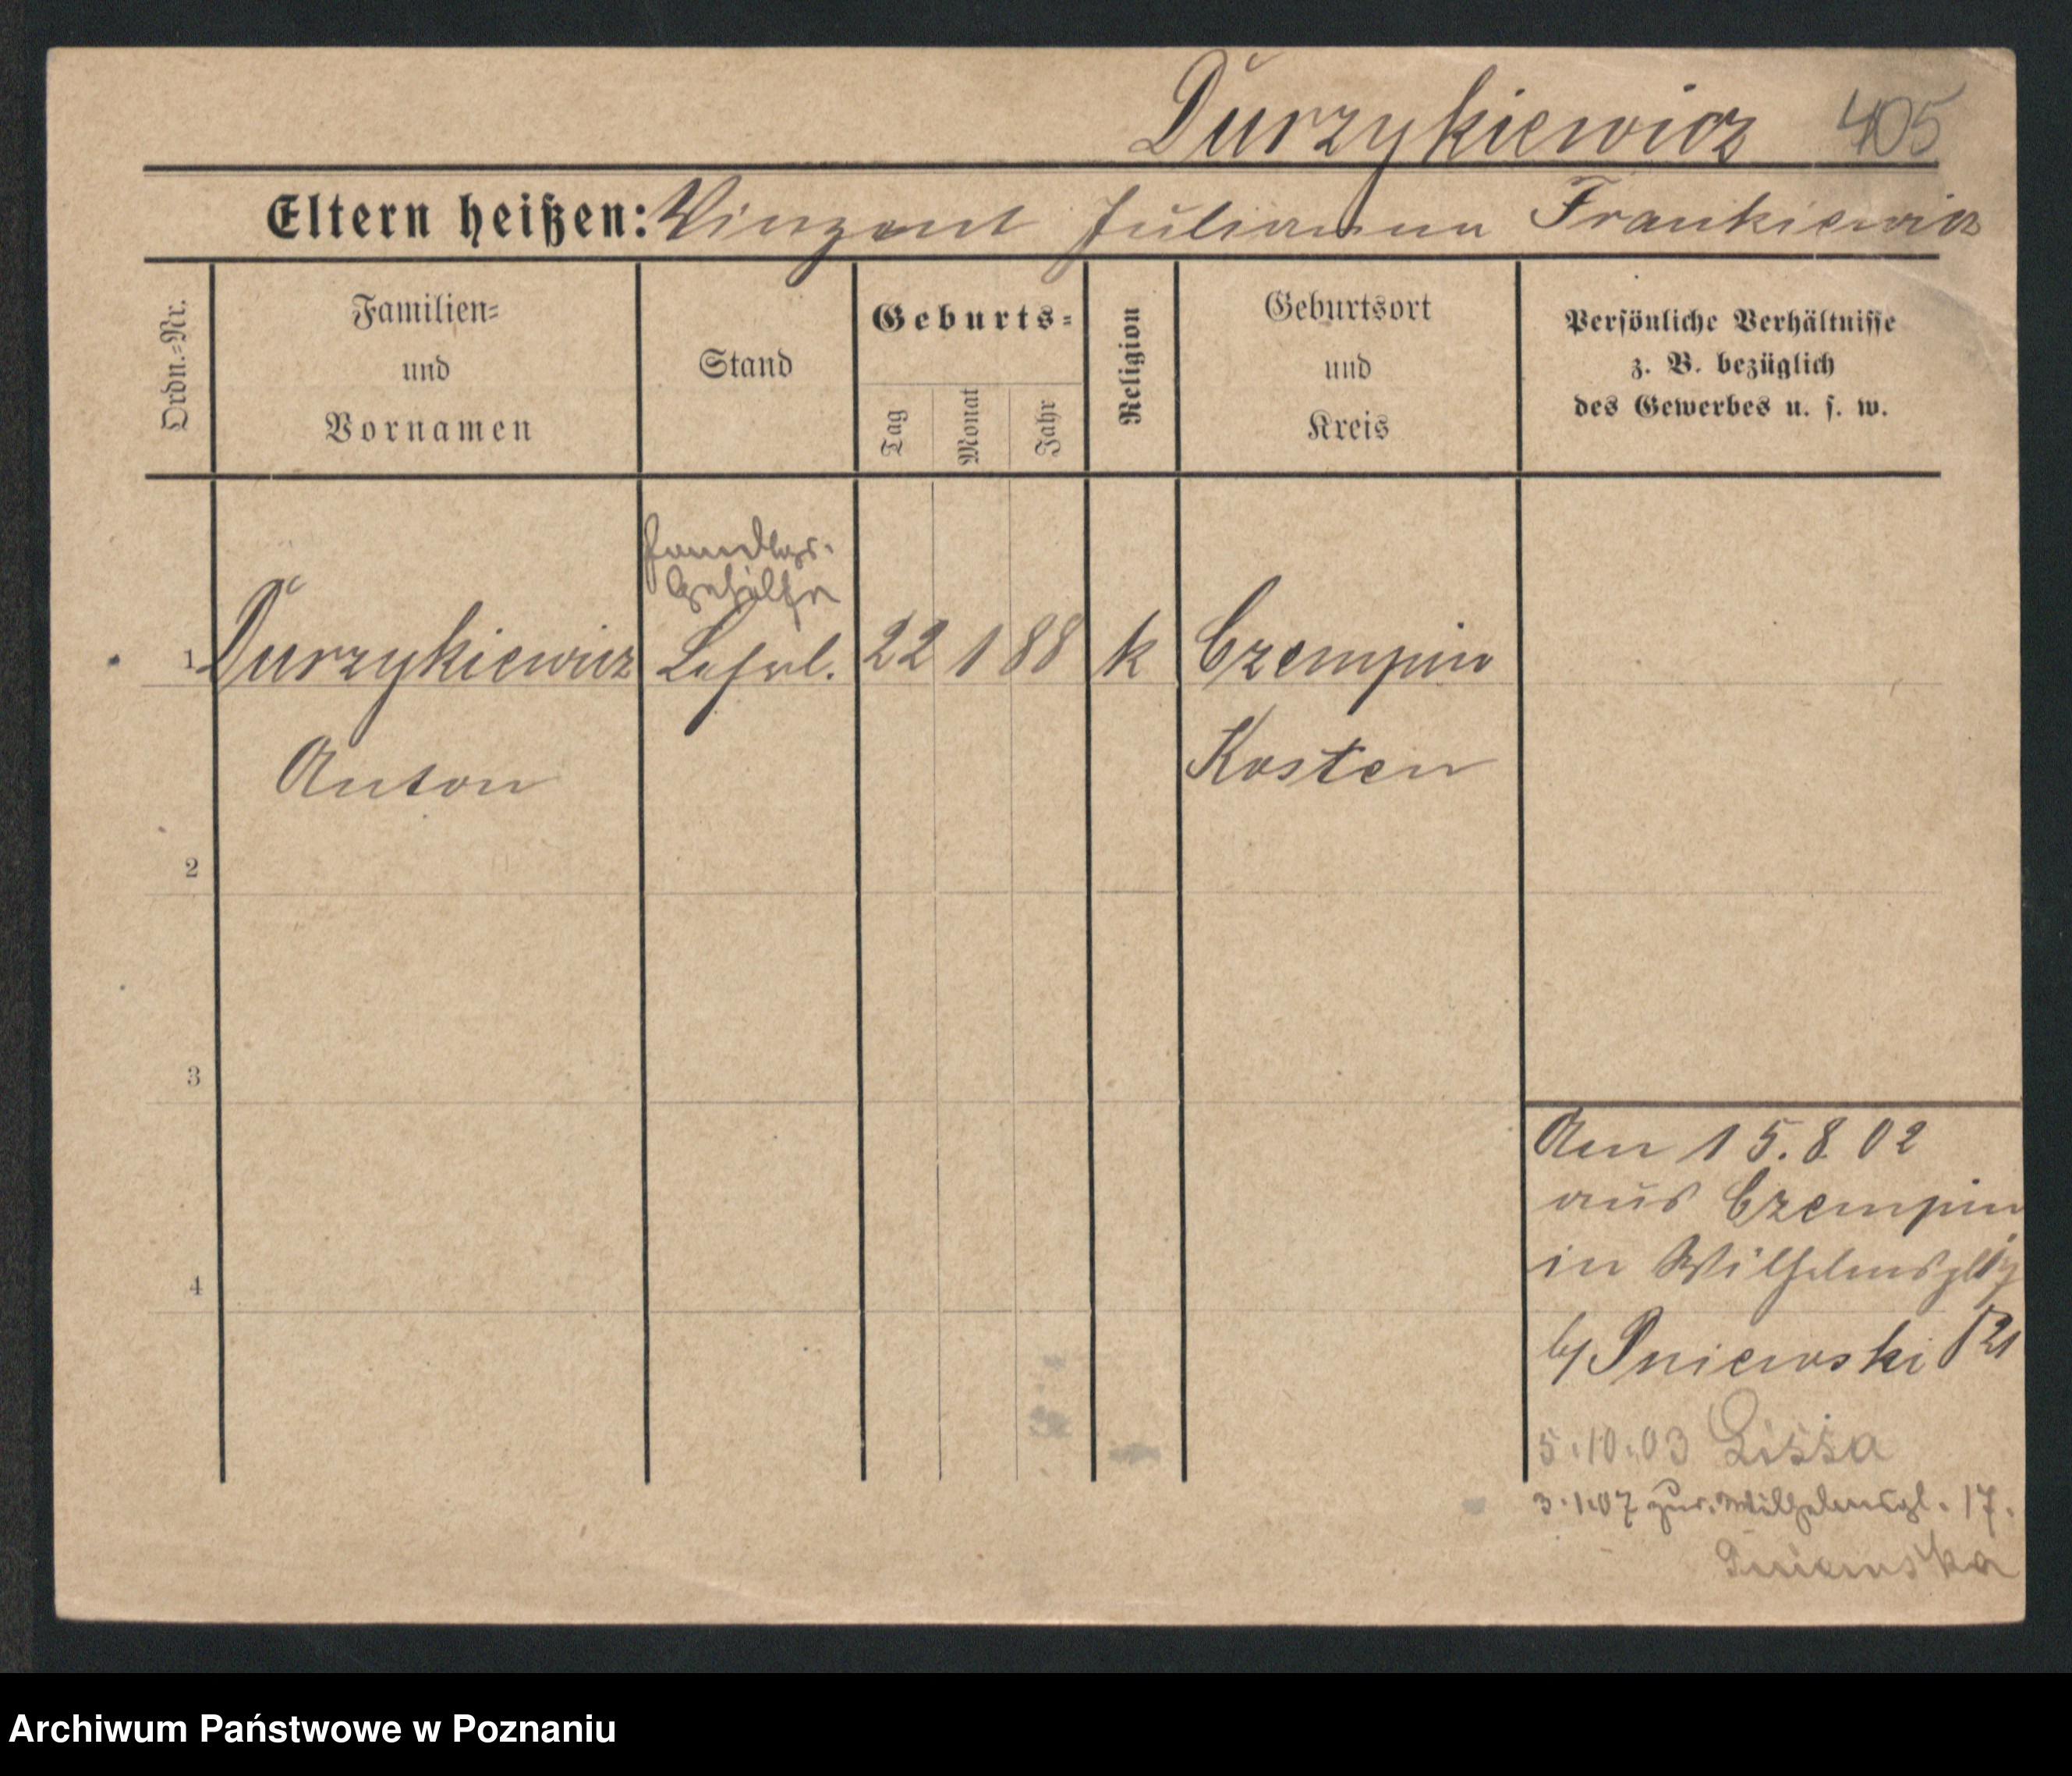 Durzykiewicz 405
Eltern heißen: Vinzent Julianna Frankiewicz
Ordn.-Nr.
Familien-
und
Vornamen
Stand
Geburts-
Tag
Monat
Jahr
Religion
Geburtsort
und
Kreis
Persönliche Verhältnisse
z. B. bezüglich
des Gewerbes u. s. w.
Handlgs.-
Gehülfe
1 Durzykiewicz Lehrl. 22 1 88 k Czempin
Anton Kosten
2
3
4
Am 15.8.02
aus Czempin
in Wilhelmspl 17
b/ Pniewski
5.10.03 Lissa
3.1.07 zur. Wilhelmspl. 17.
Pniewska
Archiwum Państwowe w Poznaniu